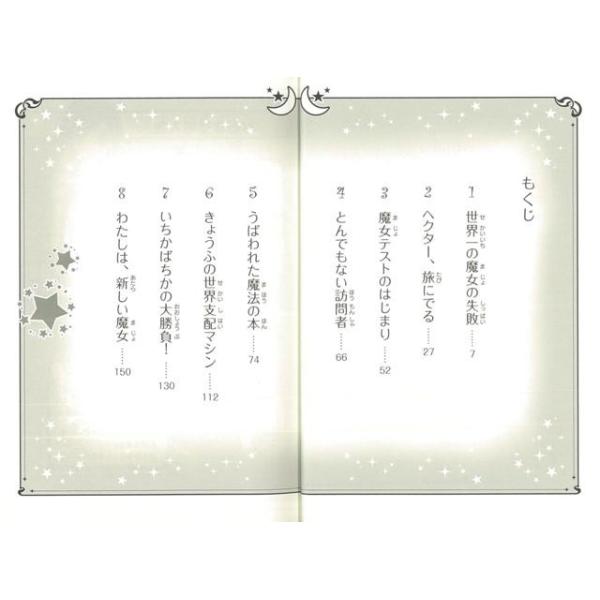 もくじ
1 世界一の魔女の失敗……7
2 ヘクター、旅にでる……27
3 魔女テストのはじまり……52
4 とんでもない訪問者……66
5 うばわれた魔法の本……74
6 きょうふの世界支配マシン……112
7 いちかばちかの大勝負！……130
8 わたしは、新しい魔女……150